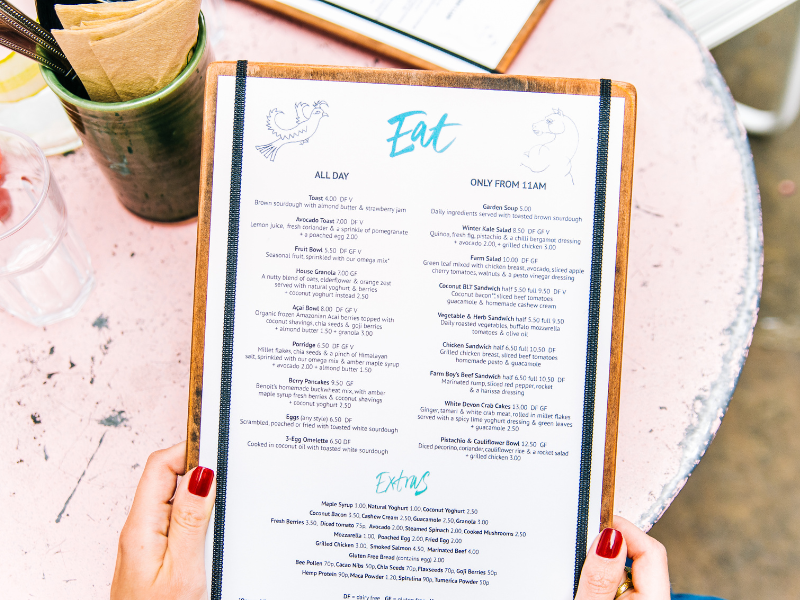 Eat
ALL DAY
Toast 4.00 DF V
Brown sourdough with almond butter & strawberry jam
Avocado Toast 7.00 DF V
Lemon juice, fresh coriander & a sprinkle of pomegranate
+ a poached egg 2.00
Fruit Bowl 5.50 DF GF V
Seasonal fruit, sprinkled with our omega mix*
House Granola 7.00 GF
A nutty blend of oats, elderflower & orange zest
served with natural yoghurt & berries
+ coconut yoghurt instead 2.50
Açai Bowl 8.00 DF GF V
Organic frozen Amazonian Açai berries topped with
coconut shavings, chia seeds & goji berries
+ almond butter 1.50 + granola 3.00
Porridge 6.50 DF GF V
Millet flakes, chia seeds & a pinch of Himalayan
salt, sprinkled with our omega mix & amber maple syrup
+ avocado 2.00 + almond butter 1.50
Berry Pancakes 9.50 GF
Benoit's homemade buckwheat mix with amber
maple syrup fresh berries & coconut shavings
+ coconut yoghurt 2.50
Eggs (any style) 6.50 DF
Scrambled, poached or fried with toasted white sourdough
3-Egg Omelette 6.50 DF
Cooked in coconut oil with toasted white sourdough
ONLY FROM 11AM
Garden Soup 5.00
Daily ingredients served with toasted brown sourdough
Winter Kale Salad 8.50 DF GF V
Quinoa, fresh fig, pistachio & a chilli bergamot dressing
+ avocado 2.00, + grilled chicken 3.00
Farm Salad 10.00 DF GF
Green leaf mixed with chicken breast, avocado, sliced apple
cherry tomatoes, walnuts & a pesto vinegar dressing
Coconut BLT Sandwich half 5.50 full 9.50 DF V
Coconut bacon**, sliced beef tomatoes
guacamole & homemade cashew cream
Vegetable & Herb Sandwich half 5.50 full 9.50
Daily roasted vegetables, buffalo mozzarella
tomatoes & olive oil
Chicken Sandwich half 6.50 full 10.50 DF
Grilled chicken breast, sliced beef tomatoes
homemade pesto & guacamole
Farm Boy's Beef Sandwich half 6.50 full 10.50 DF
Marinated rump, sliced red pepper, rocket
& a harissa dressing
White Devon Crab Cakes 13.00 DF GF
Ginger, tamari & white crab meat, rolled in millet flakes
served with a spicy lime yoghurt dressing & green leaves
+ guacamole 2.50
Pistachio & Cauliflower Bowl 12.50 GF
Diced pecorino, coriander, cauliflower rice & a rocket salad
+ grilled chicken 3.00
Extras
Maple Syrup 1.00, Natural Yoghurt 1.00, Coconut Yoghurt 2.50
Coconut Bacon 3.50, Cashew Cream 2.50, Guacamole 2.50, Granola 3.00
Fresh Berries 3.50, Diced tomato 75p, Avocado 2.00, Steamed Spinach 2.00, Cooked Mushrooms 2.50
Mozzarella 1.00, Poached Egg 2.00, Fried Egg 2.00
Grilled Chicken 3.00, Smoked Salmon 4.50, Marinated Beef 4.00
Gluten Free Bread (contains egg) 2.00
Bee Pollen 70p, Cacao Nibs 50p, Chia Seeds 70p, Flaxseeds 70p, Goji Berries 50p
Hemp Protein 90p, Maca Powder 1.20, Spirulina 90p, Tumerica Powder 50p
DF = dairy free GF =